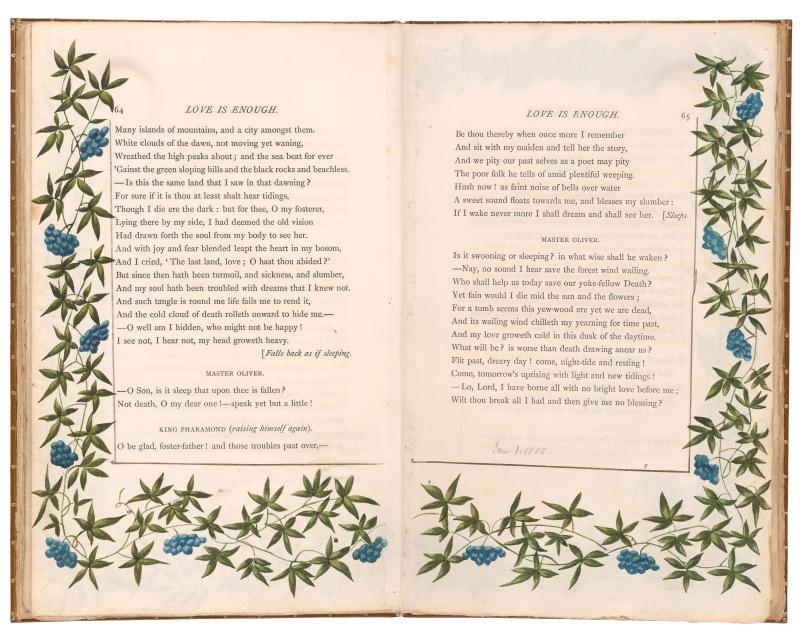 64
LOVE IS ENOUGH.
Many islands of mountains, and a city amongst them.
White clouds of the dawn, not moving yet waning,
Wreathed the high peaks about; and the sea beat for ever
'Gainst the green sloping hills and the black rocks and beachless.
—Is this the same land that I saw in that dawning?
For sure if it is thou at least shalt hear tidings,
Though I die ere the dark: but for thee, O my fosterer,
Lying there by my side, I had deemed the old vision
Had drawn forth the soul from my body to see her.
And with joy and fear blended leapt the heart in my bosom,
And I cried, 'The last land, love; O hast thou abided?'
But since then hath been turmoil, and sickness, and slumber,
And my soul hath been troubled with dreams that I knew not.
And such tangle is round me life fails me to rend it,
And the cold cloud of death rolleth onward to hide me.—
—O well am I hidden, who might not be happy!
I see not, I hear not, my head groweth heavy.
[Falls back as if sleeping.
MASTER OLIVER.
—O Son, is it sleep that upon thee is fallen?
Not death, O my dear one!—speak yet but a little!
KING PHARAMOND (raising himself again).
O be glad, foster-father! and those troubles past over,—
LOVE IS ENOUGH.
65
Be thou thereby when once more I remember
And sit with my maiden and tell her the story,
And we pity our past selves as a poet may pity
The poor folk he tells of amid plentiful weeping.
Hush now! as faint noise of bells over water
A sweet sound floats towards me, and blesses my slumber:
If I wake never more I shall dream and shall see her. [Sleeps.
MASTER OLIVER.
Is it swooning or sleeping? in what wise shall he waken?
—Nay, no sound I hear save the forest wind wailing.
Who shall help us today save our yoke-fellow Death?
Yet fain would I die mid the sun and the flowers;
For a tomb seems this yew-wood ere yet we are dead,
And its wailing wind chilleth my yearning for time past,
And my love groweth cold in this dusk of the daytime.
What will be? is worse than death drawing anear us?
Flit past, dreary day! come, night-tide and resting!
Come, tomorrow's uprising with light and new tidings!
—Lo, Lord, I have borne all with no bright love before me;
Wilt thou break all I had and then give me no blessing?
F